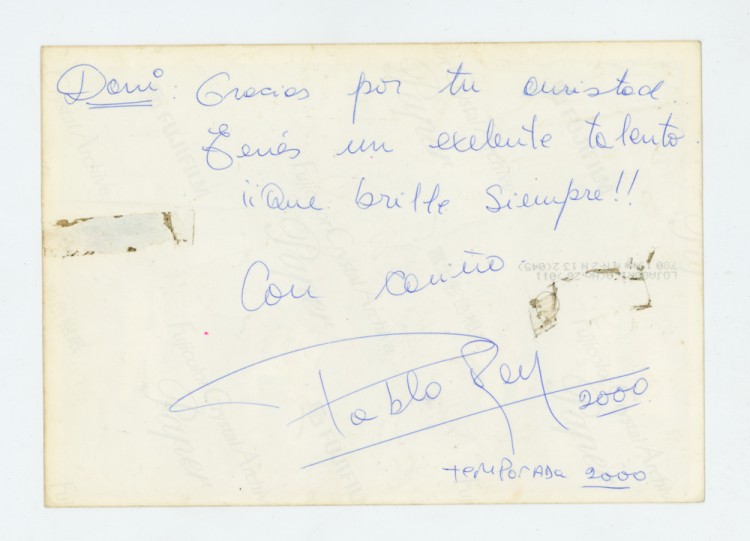 Dani: Gracias por tu amistad.
Tenés un exelente talento
¡¡Que brille siempre!!
Con cariño
Pablo Rey
2000
temporada 2000